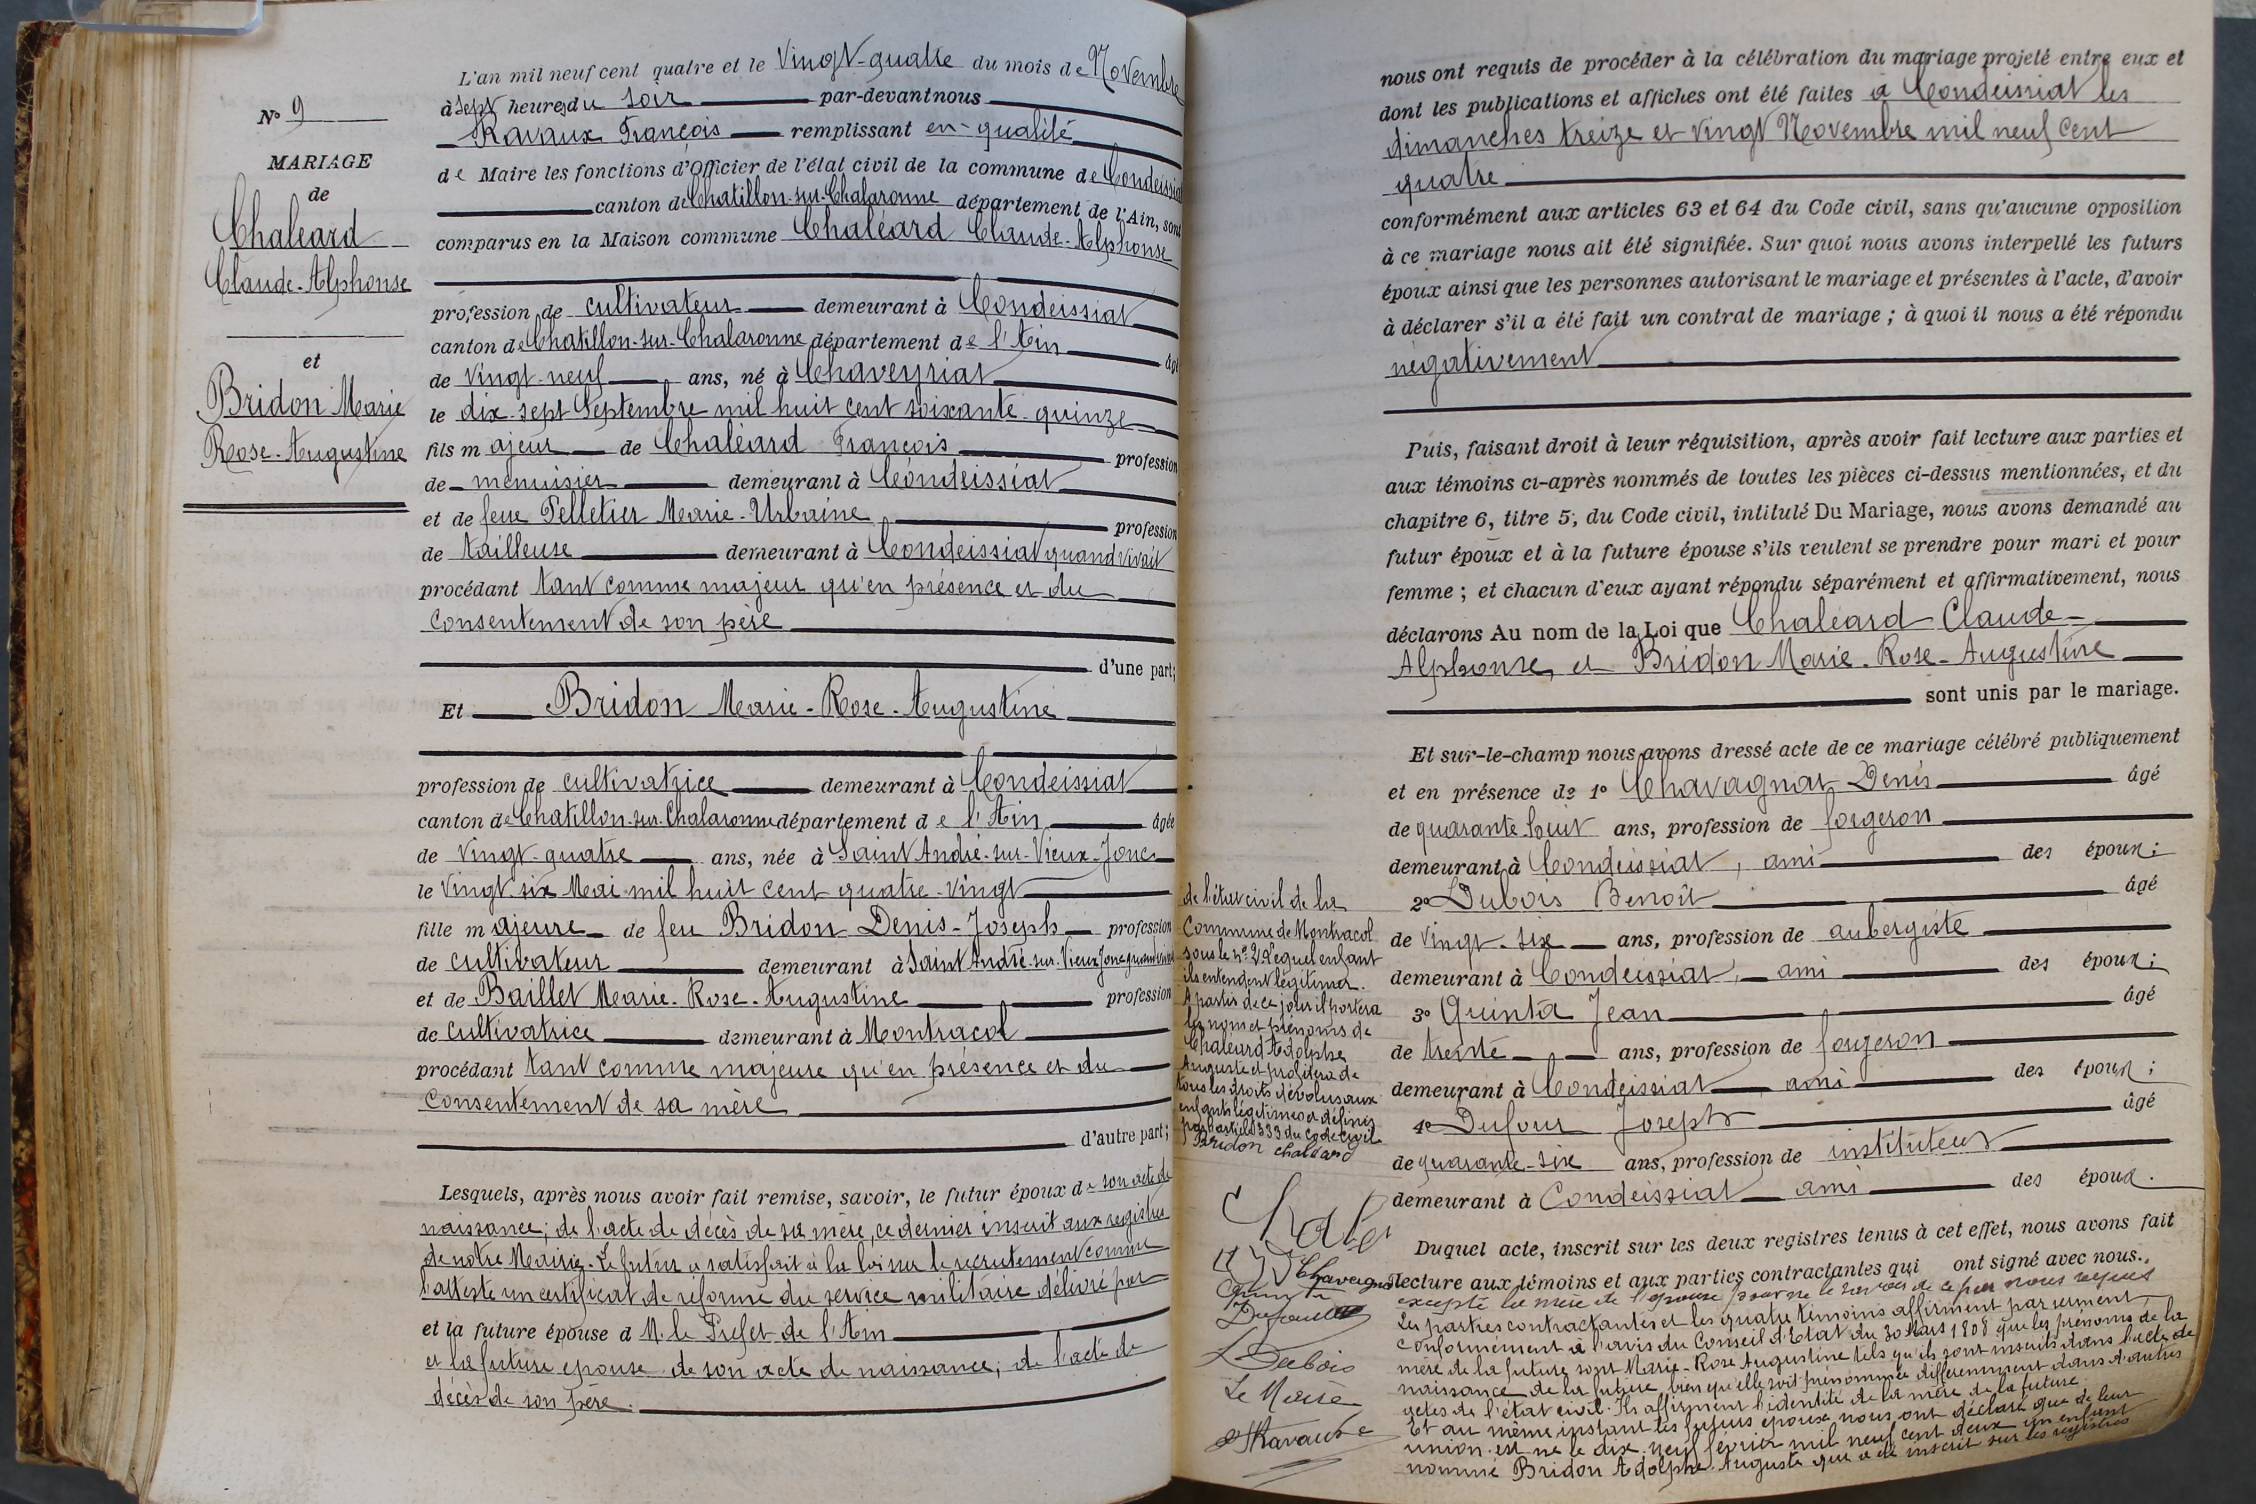 N° 9
MARIAGE
de
Chaléard
Claude-Alphonse
et
Bridon Marie
Rose-Augustine
L'an mil neuf cent quatre et le Vingt-quatre du mois de Novembre
à sept heures du soir par-devant nous
Ravaux François remplissant en qualité
de Maire les fonctions d'Officier de l'état civil de la commune de Condeissiat
canton de Chatillon-sur-Chalaronne département de l'Ain, sont
comparus en la Maison commune Chaléard Claude-Alphonse
profession de cultivateur demeurant à Condeissiat
canton de Chatillon-sur-Chalaronne département de l'Ain âgé
de vingt-neuf ans, né à Chaveyriat
le dix-sept Septembre mil huit cent soixante-quinze
fils majeur de Chaléard François profession
de menuisier demeurant à Condeissiat
et de feue Pelletier Marie-Urbaine profession
de tailleuse demeurant à Condeissiat quand vivait
procédant tant comme majeur qu'en présence et du
consentement de son père
d'une part;
Et Bridon Marie-Rose-Augustine
profession de cultivatrice demeurant à Condeissiat
canton de Chatillon-sur-Chalaronne département de l'Ain âgée
de vingt-quatre ans, née à Saint André-sur-Vieux-Jonc
le vingt-six Mai mil huit cent quatre-vingt
fille majeure de feu Bridon Denis-Joseph profession
de cultivateur demeurant à Saint André-sur-Vieux Jonc quand vivait
et de Baillet Marie-Rose-Augustine profession
de cultivatrice demeurant à Montracol
procédant tant comme majeure qu'en présence et du
consentement de sa mère
d'autre part;
Lesquels, après nous avoir fait remise, savoir, le futur époux de son acte de
naissance; de l'acte de décès de sa mère, ce dernier inscrit aux registres
de notre Mairie. Le futur a satisfait à la loi sur le recrutement comme
l'atteste un certificat de réforme du service militaire délivré par
et la future épouse d M. le Préfet de l'Ain
et la future épouse de son acte de naissance; de l'acte de
décès de son père.
nous ont requis de procéder à la célébration du mariage projeté entre eux et
dont les publications et affiches ont été faites à Condeissiat les
dimanches treize et vingt Novembre mil neuf cent
quatre
conformément aux articles 63 et 64 du Code civil, sans qu'aucune opposition
à ce mariage nous ait été signifiée. Sur quoi nous avons interpellé les futurs
époux ainsi que les personnes autorisant le mariage et présentes à l'acte, d'avoir
à déclarer s'il a été fait un contrat de mariage; à quoi il nous a été répondu
négativement
Puis, faisant droit à leur réquisition, après avoir fait lecture aux parties et
aux témoins ci-après nommés de toutes les pièces ci-dessus mentionnées, et du
chapitre 6, titre 5, du Code civil, intitulé Du Mariage, nous avons demandé au
futur époux et à la future épouse s'ils veulent se prendre pour mari et pour
femme; et chacun d'eux ayant répondu séparément et affirmativement, nous
déclarons Au nom de la Loi que Chaléard Claude-
Alphonse, et Bridon Marie-Rose-Augustine
sont unis par le mariage.
Et sur-le-champ nous avons dressé acte de ce mariage célébré publiquement
et en présence de 1° Chavagnat Denis âgé
de quarante huit ans, profession de forgeron
demeurant à Condeissiat, ami des époux;
2° Dubois Benoît âgé
de vingt-six ans, profession de aubergiste
demeurant à Condeissiat, ami des époux;
3° Quinta Jean âgé
de trente ans, profession de forgeron
demeurant à Condeissiat ami des époux;
4° Dufour Joseph âgé
de quarante-six ans, profession de instituteur
demeurant à Condeissiat ami des époux.
Duquel acte, inscrit sur les deux registres tenus à cet effet, nous avons fait
lecture aux témoins et aux parties contractantes qui ont signé avec nous.,
excepté la mère de l'épouse pour ne le savoir de ce par nous requis
Les parties contractantes et les quatre témoins affirment par serment,
conformément à l'avis du Conseil d'Etat du 30 Mars 1808 que les prénoms de la
mère de la future sont Marie-Rose Augustine tels qu'ils sont inscrits dans l'acte de
naissance de la future bien qu'elle soit prénommée différemment dans d'autres
actes de l'état civil. Ils affirment l'identité de la mère de la future.
Et au même instant les futurs époux nous ont déclaré que de leur
union est né le dix-neuf février mil neuf cent deux un enfant
nommé Bridon Adolphe-Auguste qui a été inscrit sur les registres
de l'état civil de la
Commune de Montracol
sous le n° 2. Lequel enfant
ils entendent légitimer.
A partir de ce jour il portera
les nom et prénoms de
Chaléard Adolphe
Auguste et profitera de
tous les droits dévolus aux
enfants légitimes et définis
par l'article 333 du code civil
Bridon Chaléard
Chavagnat
Quinta
Dufour
Dubois
Le Maire
Ravaux